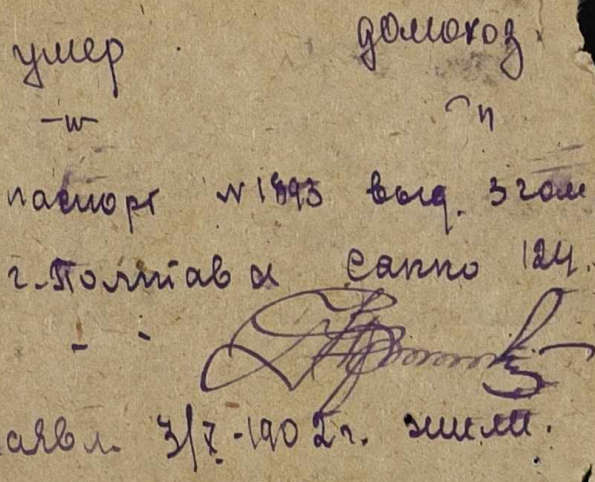 умер домохоз
-"- -"-
паспорт № 1893 выд. 3 гом
г. Полтава Сакко 124.
- -
аявл. 3/X - 190 г. жили.